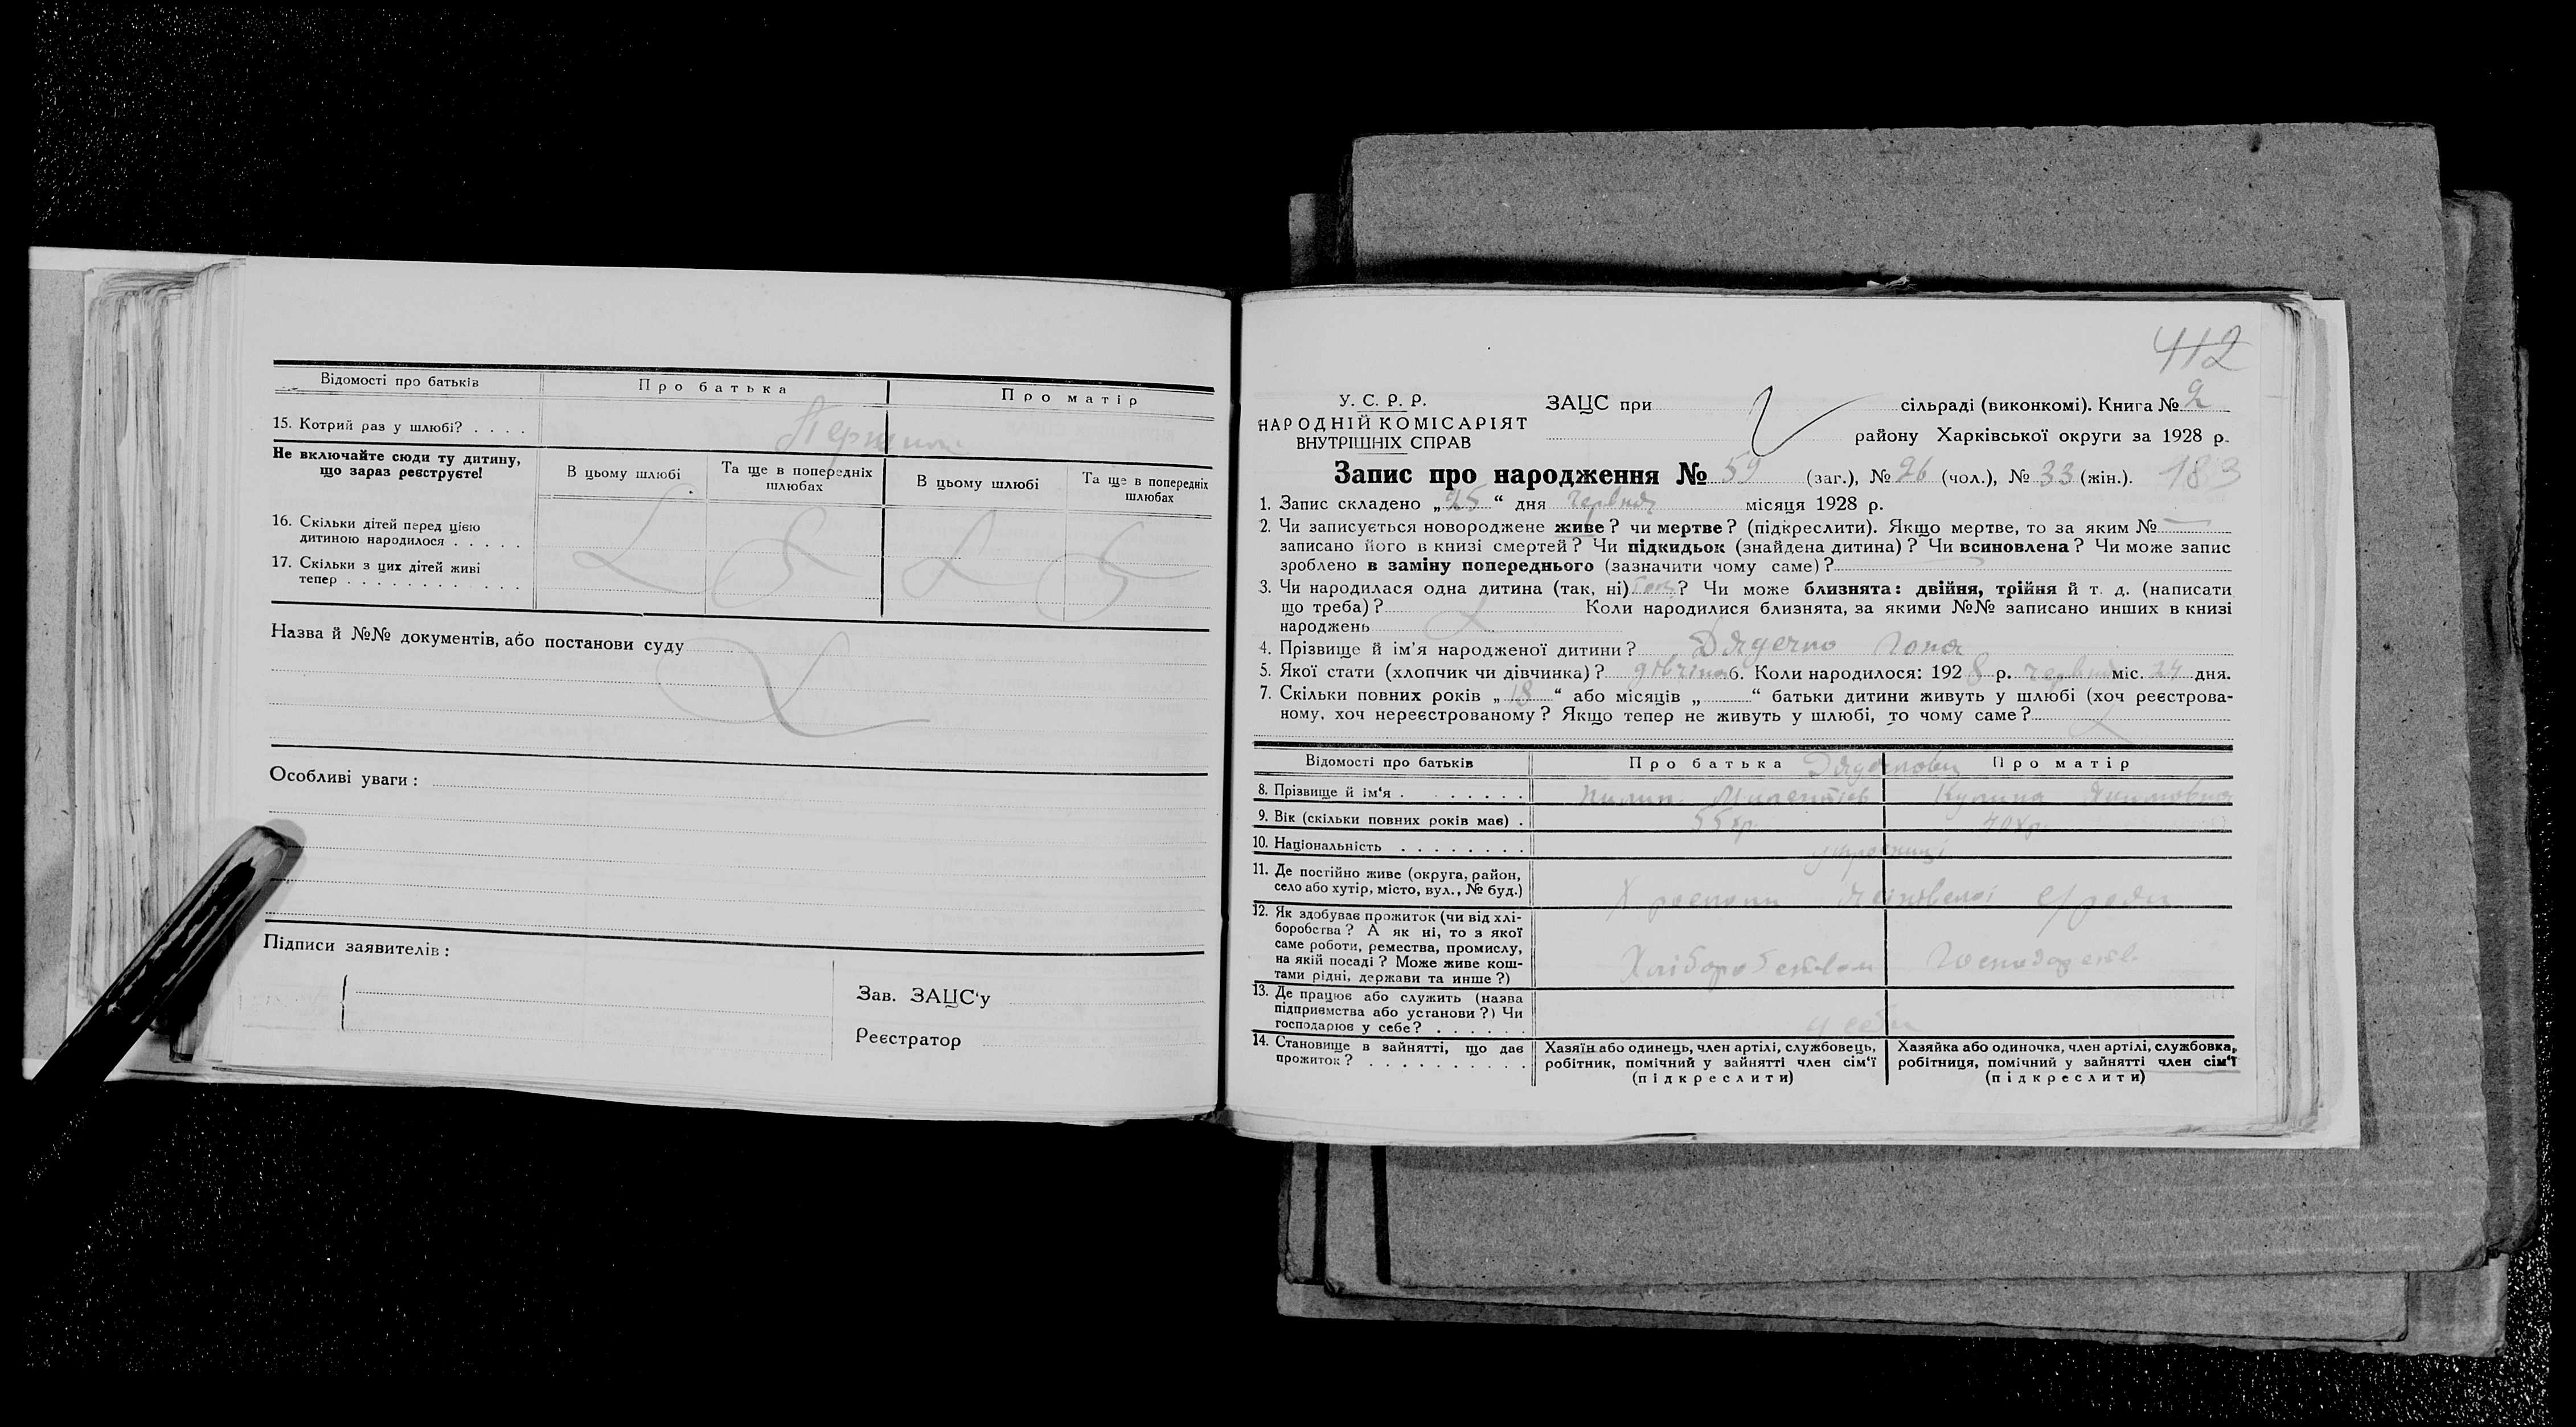 Відомості про батьків
Про батька
Про матір
15. Котрий раз у шлюбі? . . . .
Не включайте сюди ту дитину,
що зараз реєструєте!
В цьому шлюбі
Та ще в попередніх
шлюбах
В цьому шлюбі
Та ще в попередніх
шлюбах
16. Скільки дітей перед цією
дитиною народилося . . . . .
17. Скільки з цих дітей живі
тепер . . . . . . . . . . .
Назва й №№ документів, або постанови суду
Особливі уваги :
Підписи заявителів :
Зав. ЗАЦС'у
Реєстратор
412
У. С. Р. Р.
НАРОДНІЙ КОМІСАРІЯТ
ВНУТРІШНІХ СПРАВ
ЗАЦС при сільраді (виконкомі). Книга № 2
району Харківської округи за 1928 р.
Запис про народження № 59 (заг.), № 26 (чол.), № 33 (жін.). 183
1. Запис складено „ 25 “ дня червня місяця 1928 р.
2. Чи записується новороджене живе? чи мертве? (підкреслити). Якщо мертве, то за яким № —
записано його в книзі смертей? Чи підкидьок (знайдена дитина)? Чи всиновлена? Чи може запис
зроблено в заміну попереднього (зазначити чому саме)?
3. Чи народилася одна дитина (так, ні) ? Чи може близнята: двійня, трійня й т. д. (написати
що треба)? Коли народилися близнята, за якими №№ записано инших в книзі
народжень
4. Прізвище й ім'я народженої дитини?
5. Якої стати (хлопчик чи дівчинка)? дівчина 6. Коли народилося: 1928 р. червня міс. 24 дня.
7. Скільки повних років „ 18 “ або місяців „ “ батьки дитини живуть у шлюбі (хоч реєстрова-
ному, хоч нереєстрованому? Якщо тепер не живуть у шлюбі, то чому саме?
Відомості про батьків
Про батька
Про матір
8. Прізвище й ім'я . . . . . . . .
Пилип
Якимовна
9. Вік (скільки повних років має) .
55 р.
40 р.
10. Національність . . . . . . . .
українці
11. Де постійно живе (округа, район,
село або хутір, місто, вул., № буд.)
12. Як здобуває прожиток (чи від хлі-
боробства? А як ні, то з якої
саме роботи, ремества, промислу,
на якій посаді? Може живе кош-
тами рідні, держави та инше?)
Хліборобством
13. Де працює або служить (назва
підприємства або установи?) Чи
господарює у себе? . . . . . .
у себе
14. Становище в зайнятті, що дає
прожиток? . . . . . . . . . .
Хазяїн або одинець, член артілі, службовець,
робітник, помічний у зайнятті член сім'ї
(підкреслити)
Хазяйка або одиночка, член артілі, службовка,
робітниця, помічний у зайнятті член сім'ї
(підкреслити)